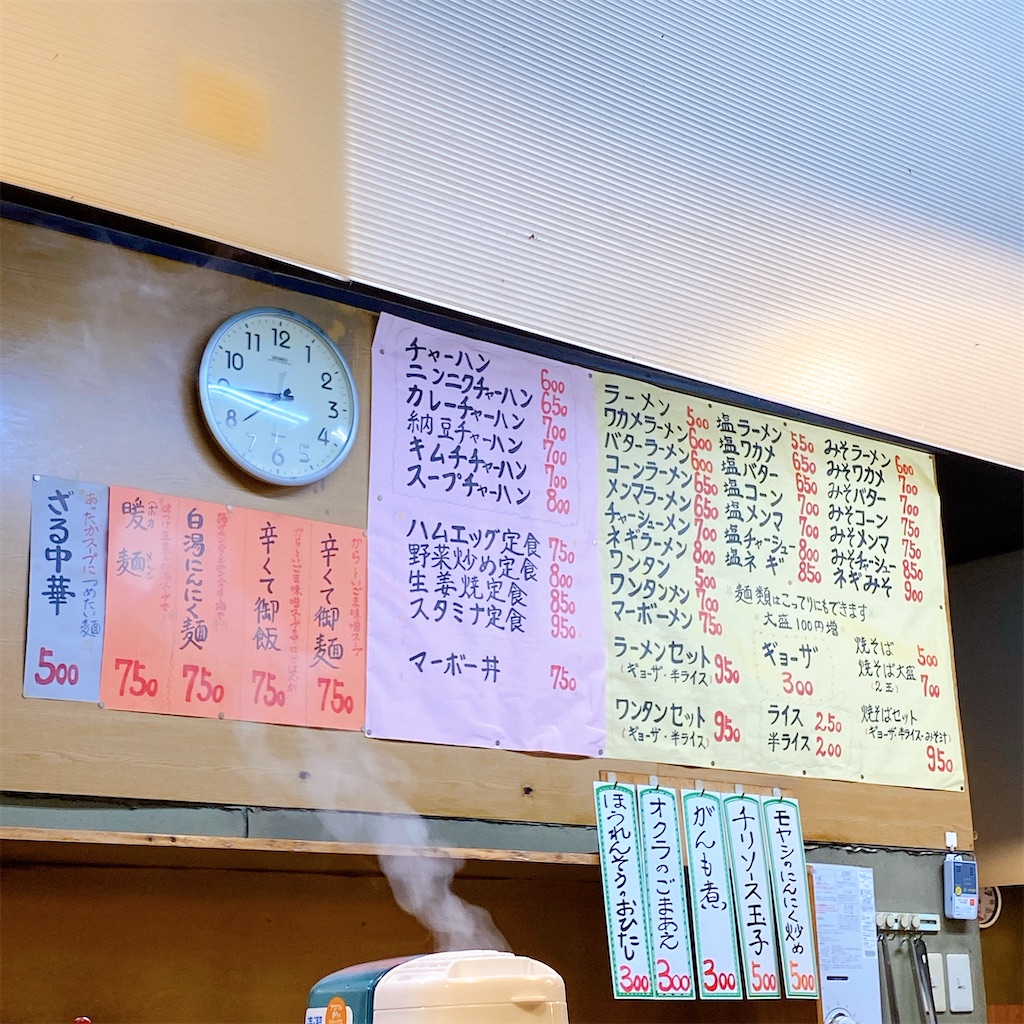 12
11
1
10
2
9
3
8
4
7
6
5
ざる中華
あたたかスープにつめたい麺
500
暖麺
ポカメン
750
白湯にんにく麺
750
辛くて御飯
750
辛くて御麺
750
チャーハン 600
ニンニクチャーハン 650
カレーチャーハン 700
納豆チャーハン 700
キムチチャーハン 700
スープチャーハン 800
ハムエッグ定食 750
野菜炒め定食 800
生姜焼定食 850
スタミナ定食 950
マーボー丼 750
ラーメン 500
ワカメラーメン 600
バターラーメン 600
コーンラーメン 650
メンマラーメン 650
チャーシューメン 700
ネギラーメン 800
ワンタン 500
ワンタンメン 700
マーボーメン 750
ラーメンセット 950
(ギョーザ・半ライス)
ワンタンセット 950
(ギョーザ・半ライス)
塩ラーメン 550
塩ワカメ 650
塩バター 650
塩コーン 700
塩メンマ 700
塩チャーシュー 800
塩ネギ 850
みそラーメン 600
みそワカメ 700
みそバター 700
みそコーン 750
みそメンマ 750
みそチャーシュー 850
ネギみそ 900
麺類はこってりにもできます
大盛100円増
ギョーザ
300
ライス 250
半ライス 200
焼そば 500
焼そば大盛 700
(2玉)
焼そばセット
(ギョーザ・半ライス・みそ汁)
950
ほうれんそうのおひたし
300
オクラのごまあえ
300
がんも煮
300
チリソース玉子
500
モヤシのにんにく炒め
500